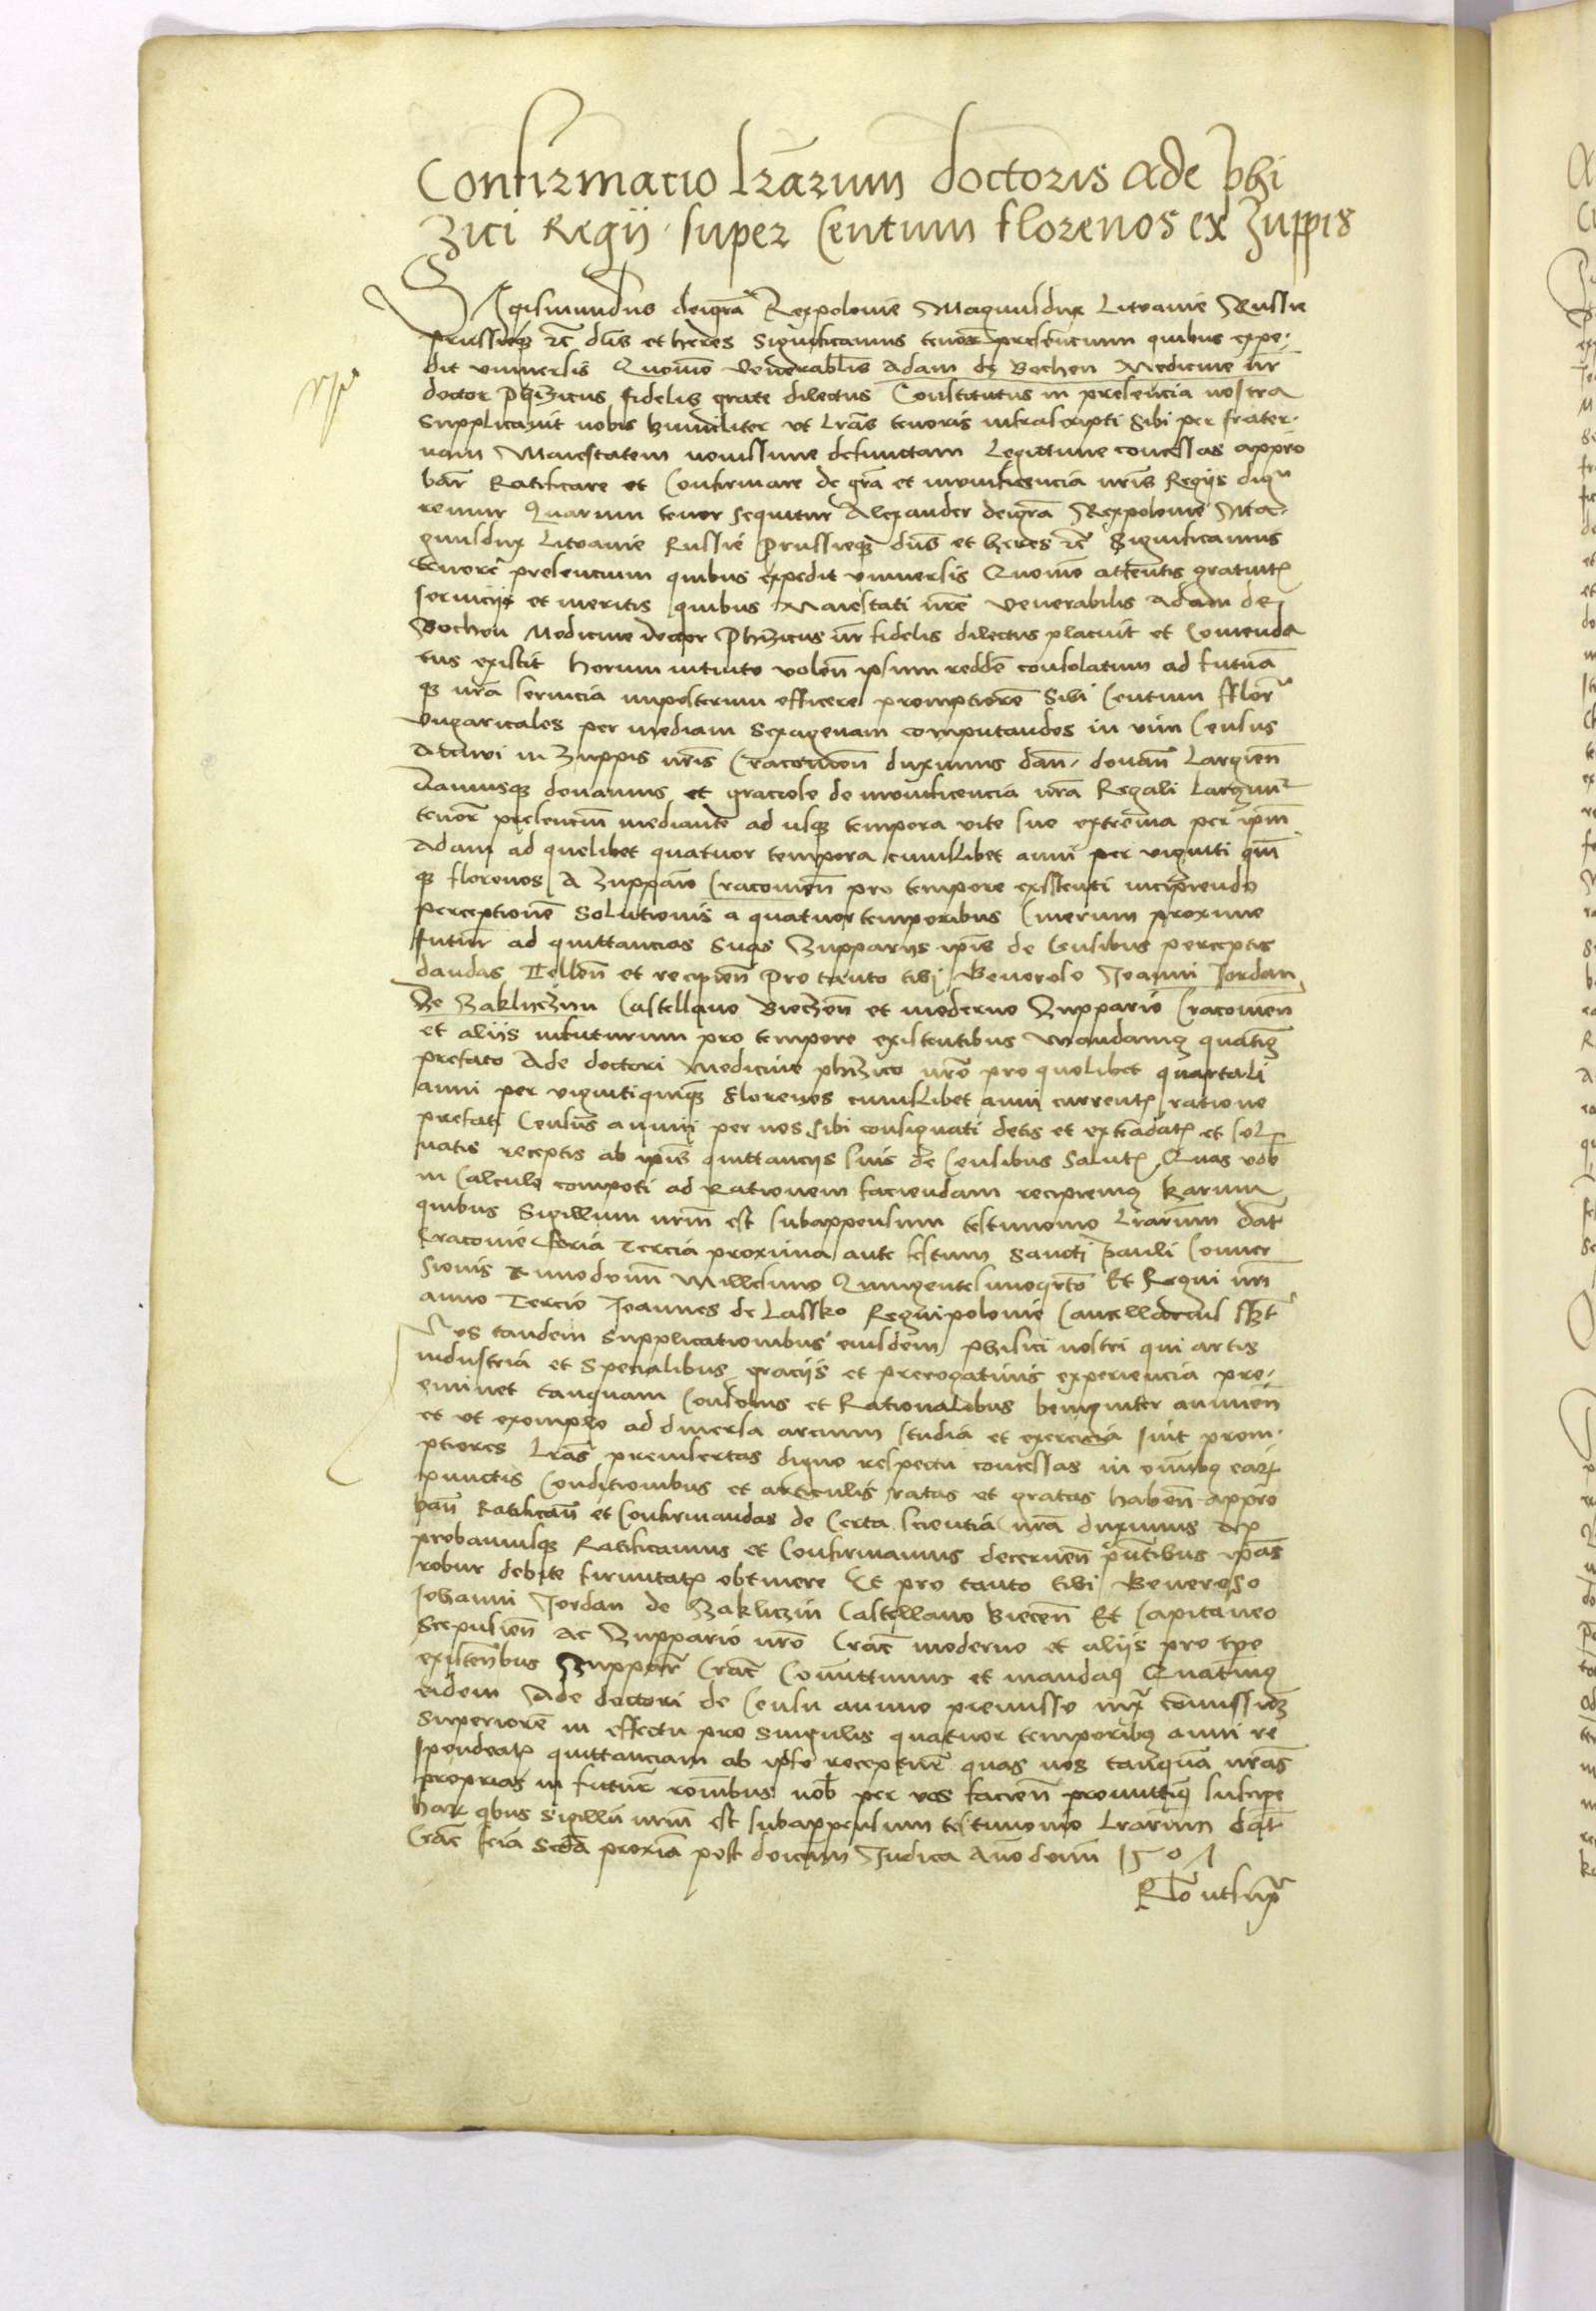 Confirmacio lr̄arum doctoris Ade phi
zici Regij super Centum florenos ex Zuppis
Sigismundus deigrā Rexpolonie Magnusdux Litvanie Russie
Prussieq₃ ⁊c̄ dn̄s et heres Significamus tenor̄ presencium quibus expe-
dit vniuersis Quomō Venerabilis Adam de Bochen Medicine nr̄
doctor Phizicus fidelis grate dilectus Constitutus in presencia nostra
Supplicauit nobis humiliter vt lrās tenoris infrascripti Sibi per frater-
nam Maiestatem nouissime defunctam Legittime concessas appro
bār Ratificare et Confirmare de grā et munificencia nrīs Regijs dig
remur Quarum tenor sequitur Alexander deigrā Rexpolonie Ma-
gnusdux Litvanie Russie Prussieq₃ dn̄s et heres ⁊c̄ Significamus
tenore presencium quibus expedit vniuersis Quomō attentis gratuitꝭ
seruicijs et meritis quibus Maiestati nrē Venerabilis Adam de
Bochen Medicine doctor Phizicus nr̄ fidelis dilectus placuit et Comenda
tus existit horum intuitu volen̄ ipsum reddē consolatum ad futurā
q₃ nrā seruicia inposterum efficere promptiorē Sibi Centum flor̄
vngaricales per mediam Sexagenam computandos in vim Census
Annui in Zuppis nrīs Cracouien̄ duximus dan̄. donan̄ Largien̄
Damusq₃ donamus et graciose de munificencia nrā Regali Largimr̄
tenor̄ presencium mediante ad usq₃ tempora vite sue extrema per ipm̄
Adam ad quelibet quatuor tempora cuiuslibet anni per viginti qui
q₃ florenos A Zuppario Cracouien̄ pro tempore existenti incipiendo
perceptionē Solutionis a quatuor temporibus Cinerum proxime
futur̄ ad quittancias Suas Zupparijs ipīs de Censibus perceptis
dandas Tollen̄ et recipien̄ Pro tanto tibi Generoso Joanni Jordan
de Zakliczin Castellano Bieczen̄ et moderno Zuppario Cracouien̄
et alijs infuturum pro tempore existentibus Mandamꝰ quatinꝰ
prefato Ade doctori Medicine phizico nrō pro quolibet quartali
anni per vigintiquinq₃ Florenos cuiuslibet anni currentꝭ ratione
prefati Census annui per nos sibi consignati detis et extradatꝭ et sol
uatis receptis ab ipīs quittancijs suis de Censibus Salutꝭ Quas vob
in Calculo compoti ad Rationem faciendam recipiemꝰ harum
quibus Sigillum nrm̄ est subappensum testimonio lrārum dat̄
Cracouie feria Tercia proxima ante festum Sancti Pauli Conuer
sionis Annodomī Millesimo Quingentesimoqrto Et Regni nrī
anno Tercio Joannes de Lassko Regnipolonie Cancellarius sszt
Nos tandem Supplicationibus eiusdem phisici nostri qui artis
industria et Specialibus gracijs et prerogatiuis experiencia pre-
eminet tanquam Consonis et Rationalibus benigniter annuen̄
et vt exemplo ad diuersa arcium studia et exercicia sint prom-
ptiores Lrās preinsertas digno respectu concessas in omībꝰ earꝭ
punctis Conditionibus et articulis ratas et gratas haben̄ appro
ban̄ Ratifican̄ et Confirmandas de Certa scientia nrā duximus Ap
probamusq₃ Ratificamus et Confirmamus decernen̄ pn̄tibus ipas
robur debite firmitatꝭ obtinere Et pro tanto tibi Generoso
Johanni Jordan de Zakliczin Castellano Biecen̄ Et Capitaneo
Scepusien̄ ac Zuppario nrō Crac̄ moderno et alijs pro tpe
existen̄bus Zuppar̄ Crac̄ Comittimus et mandaꝰ Quatinꝰ
eidem Ade doctori de Censu annuo premisso iux comissioē
Superiorē in effectu pro singulis quatuor temporibꝰ anni re
spondeatꝭ quittanciam ab ipso recepturi quas nos tanquā nrās
proprias in futur̄ roībus nob̄ per vos facien̄ promittimꝰ suscipe
harꝭ qbus Sigillū nrm̄ est subappensum testimonio Lrārum dat̄
Crac̄ feia Scdā proxiā post doicam Judica Anōdomi 1507
Rlō utsupr̄